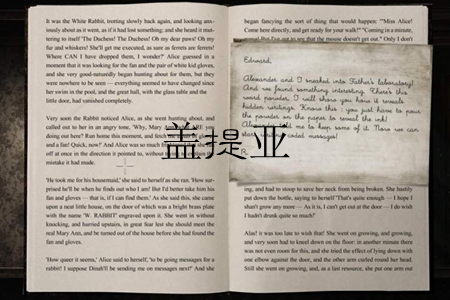 It was the White Rabbit, trotting slowly back again, and looking anx-
iously about as it went, as if it had lost something; and she heard it mut-
tering to itself 'The Duchess! The Duchess! Oh my dear paws! Oh my
fur and whiskers! She'll get me executed, as sure as ferrets are ferrets!
Where CAN I have dropped them, I wonder?' Alice guessed in a
moment that it was looking for the fan and the pair of white kid gloves,
and she very good-naturedly began hunting about for them, but they
were nowhere to be seen — everything seemed to have changed since
her swim in the pool, and the great hall, with the glass table and the
little door, had vanished completely.
Very soon the Rabbit noticed Alice, as she went hunting about, and
called out to her in an angry tone, 'Why, Mary
doing out here? Run home this moment, and fetch
and a fan! Quick, now!' And Alice was so much
off at once in the direction it pointed to, without
mistake it had made.
'He took me for his housemaid,' she said to herself as she ran. 'How sur-
prised he'll be when he finds out who I am! But I'd better take him his
fan and gloves — that is, if I can find them.' As she said this, she came
upon a neat little house, on the door of which was a bright brass plate
with the name 'W. RABBIT' engraved upon it. She went in without
knocking, and hurried upstairs, in great fear lest she should meet the
real Mary Ann, and be turned out of the house before she had found the
fan and gloves.
'How queer it seems,' Alice said to herself, 'to be going messages for a
rabbit! I suppose Dinah'll be sending me on messages next!' And she
盖提亚
began fancying the sort of thing that would happen: '"Miss Alice!
Come here directly, and get ready for your walk!" "Coming in a minute,
to see that the mouse doesn't get out." Only I don't
Edward,
Alexander and I sneaked into Father's laboratory!
And we found something interesting. There's this
weird powder, I will show you how it reveals
hidden writings. Know this: you just have to pour
the powder on the paper to reveal the ink!
Alexander told me to keep some of it. Now we can
coded messages!
ing, and had to stoop to save her neck from being broken. She hastily
put down the bottle, saying to herself 'That's quite enough — I hope I
shan't grow any more — As it is, I can't get out at the door — I do wish
I hadn't drunk quite so much!'
Alas! it was too late to wish that! She went on growing, and growing,
and very soon had to kneel down on the floor: in another minute there
was not even room for this, and she tried the effect of lying down with
one elbow against the door, and the other arm curled round her head.
Still she went on growing, and, as a last resource, she put one arm out